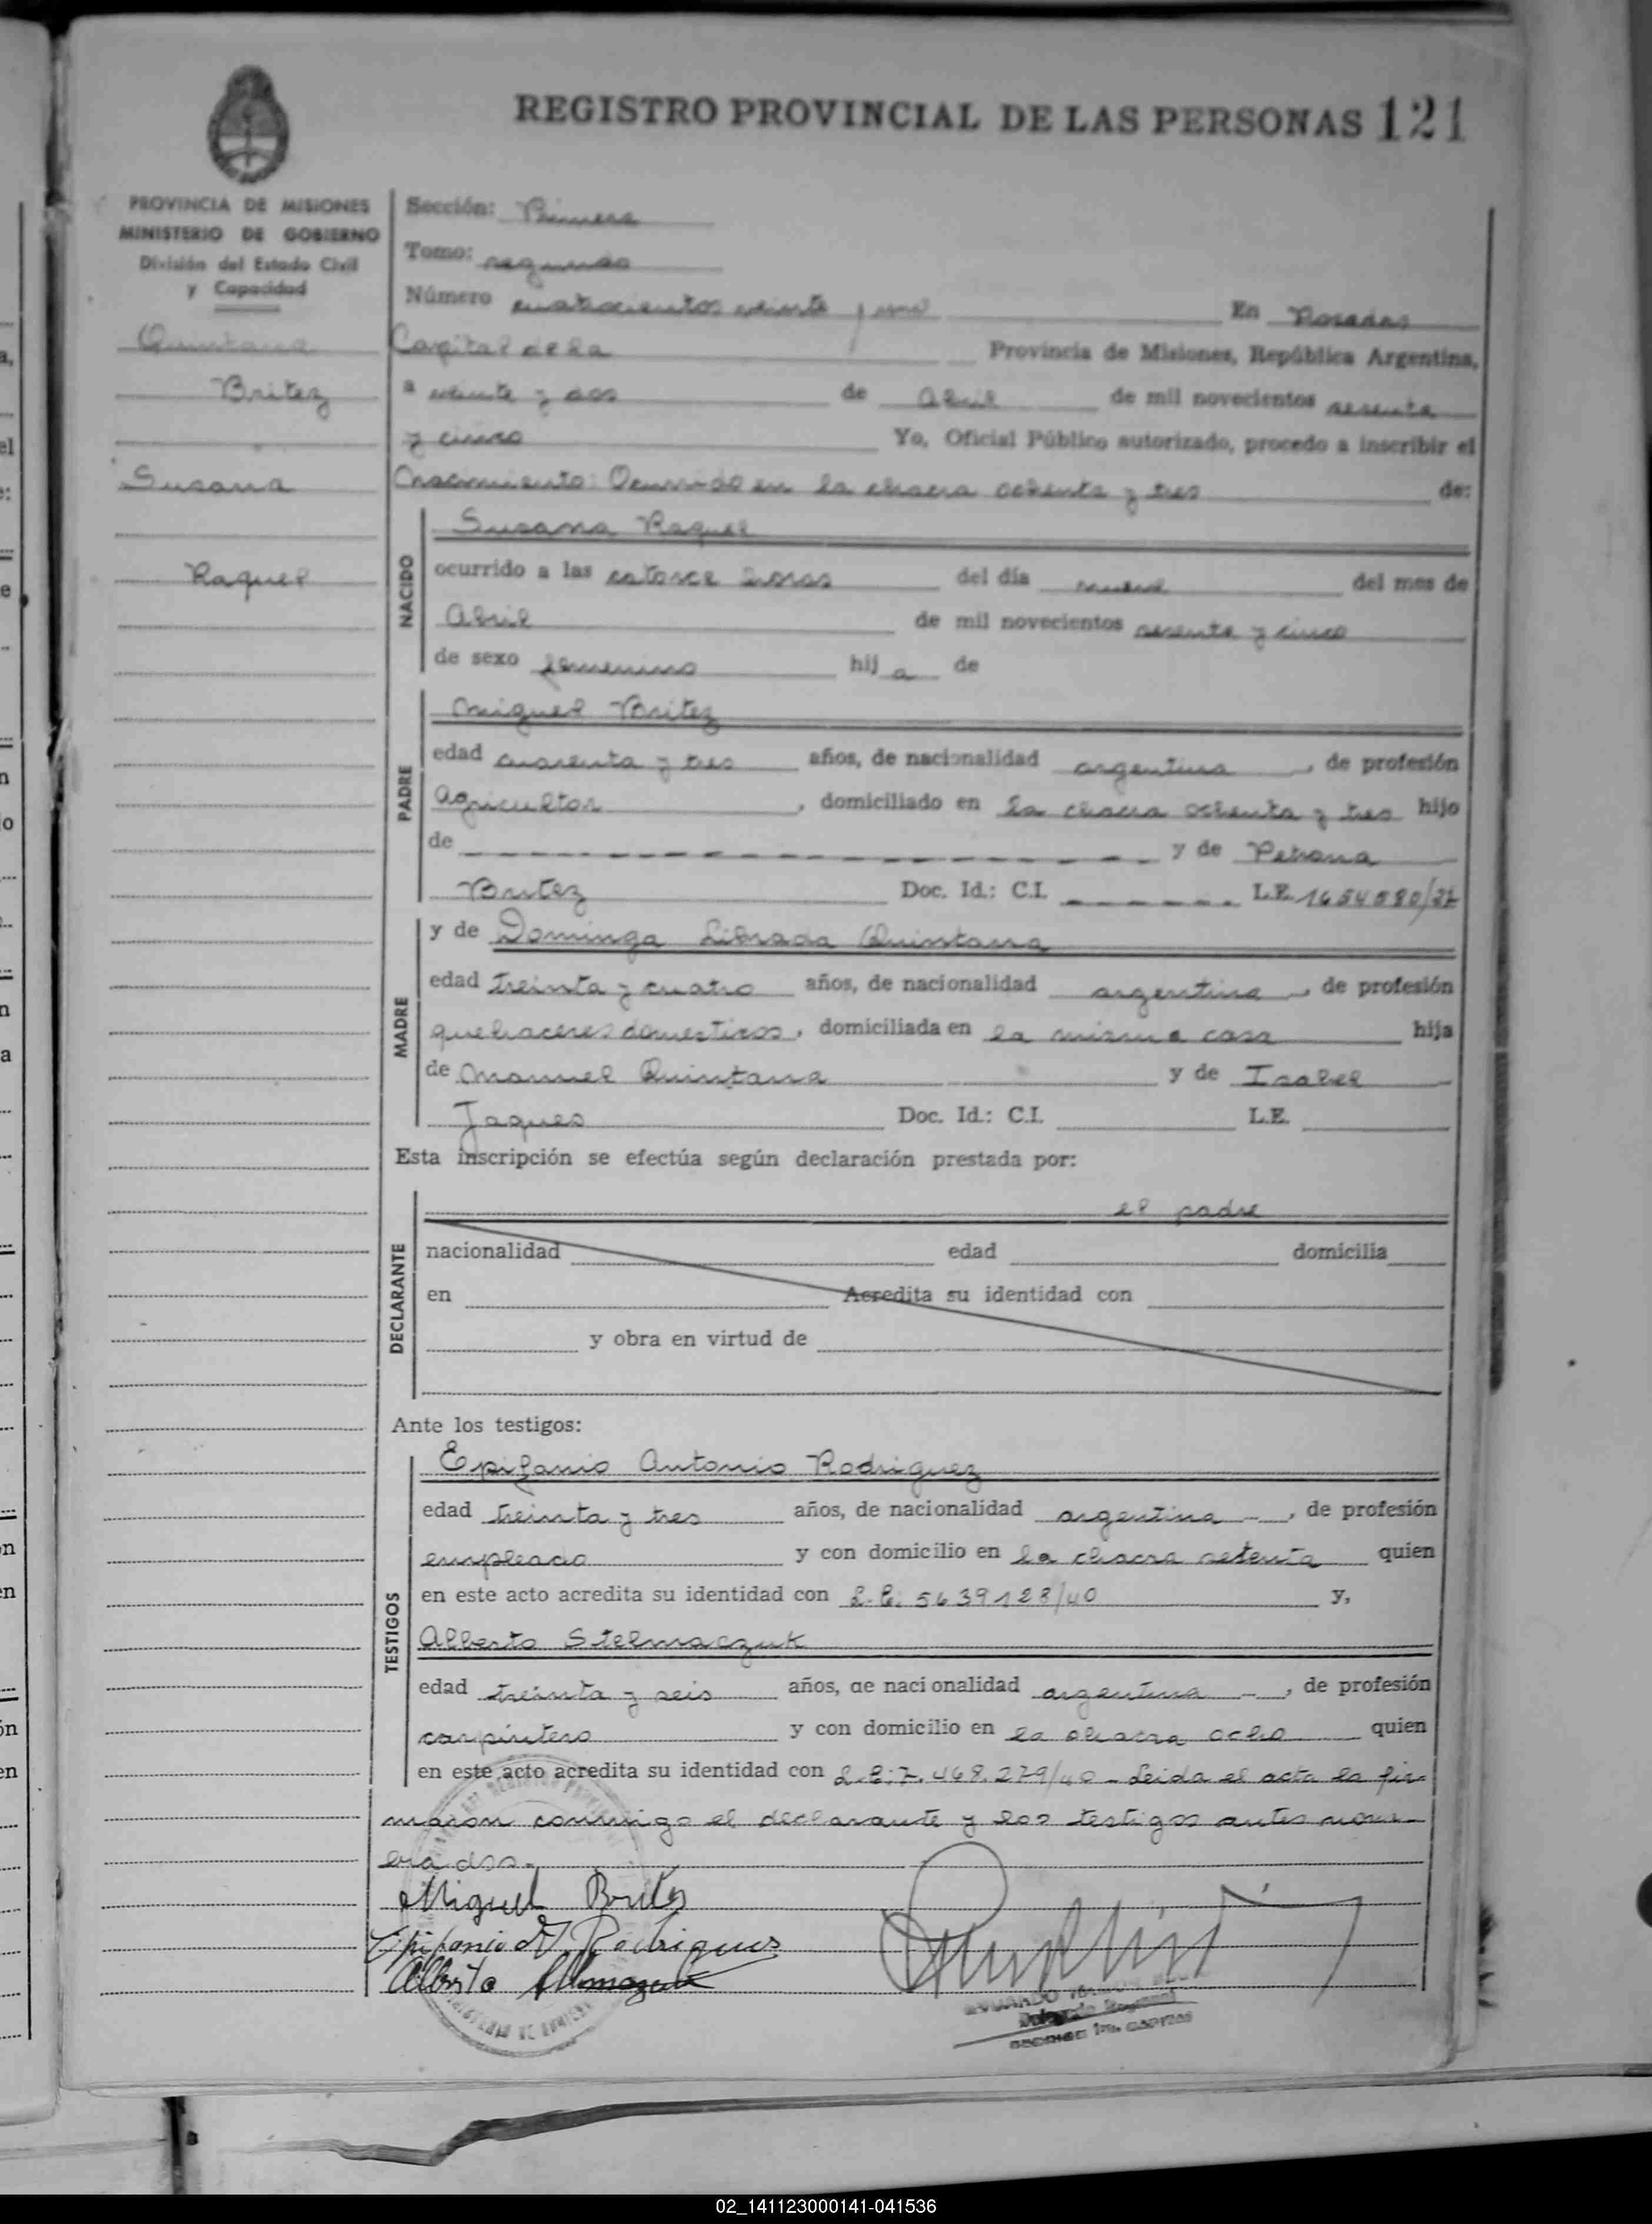 REGISTRO PROVINCIAL DE LAS PERSONAS 121
PROVINCIA DE MISIONES
MINISTERIO DE GOBIERNO
División del Estado Civil
y Capacidad
Quintana
Britez
Susana
Raquel
Sección: Primera
Tomo: segundo
Número cuatrocientos veinte y uno En Posadas
Capital de la Provincia de Misiones, República Argentina,
a veinte y dos de Abril de mil novecientos sesenta
y cinco Yo, Oficial Público autorizado, procedo a inscribir el
Nacimiento: Ocurrido en la chacra ochenta y tres de:
NACIDO
Susana Raquel
ocurrido a las catorce horas del día nueve del mes de
Abril de mil novecientos sesenta y cinco
de sexo femenino hij a de
PADRE
Miguel Britez
edad cuarenta y tres años, de nacionalidad argentina, de profesión
Agricultor, domiciliado en la chacra ochenta y tres hijo
de y de Petrona
Britez Doc. Id.: C.I. L.E. 1654580/
MADRE
y de Dominga Librada Quintana
edad treinta y cuatro años, de nacionalidad argentina, de profesión
quehaceres domesticos, domiciliada en la misma casa hija
de Manuel Quintana y de Isabel
Jaques Doc. Id.: C.I. L.E.
Esta inscripción se efectúa según declaración prestada por:
DECLARANTE
el padre
nacionalidad edad domicilia
en Acredita su identidad con
y obra en virtud de
Ante los testigos:
TESTIGOS
Epifanio Antonio Rodriguez
edad treinta y tres años, de nacionalidad argentina -, de profesión
empleado y con domicilio en la chacra setenta quien
en este acto acredita su identidad con L.E. 5639128/40 y,
Alberto Stelmaczuk
edad treinta y seis años, de nacionalidad argentina -, de profesión
carpintero y con domicilio en la chacra ocho quien
en este acto acredita su identidad con L.E: 7.468.279/40 - Leida el acta la fir-
maron conmigo el declarante y los testigos antes nom-
brados.-
Miguel Britez
Epifanio A. Rodrigues
Alberto Stelmaczuk
Delegado Regional
02_141123000141-041536